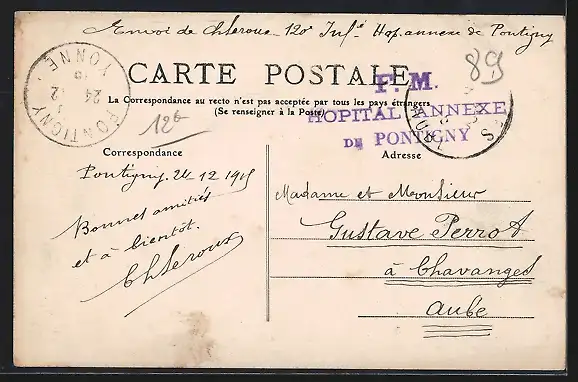 Envoi de Ch Leroux 120e Infie Hop. annexe de Pontigny
89
CARTE POSTALE
F. M.
HOPITAL ANNEXE
DE PONTIGNY
PONTIGNY
24 12
YONNE
La Correspondance au recto n'est pas acceptée par tous les pays étrangers
(Se renseigner à la Poste)
Correspondance
Adresse
Pontigny 24-12 1915
Bonnes amitiés
et à bientôt.
Ch Leroux
Madame et Monsieur
Gustave Perrot
à Chavanges
Aube